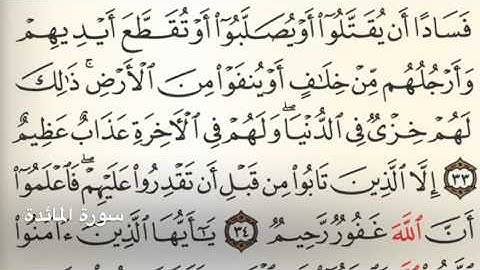 فَسَادًا أَن يُقَتَّلُوٓا۟ أَوْ يُصَلَّبُوٓا۟ أَوْ تُقَطَّعَ أَيْدِيهِمْ
وَأَرْجُلُهُم مِّنْ خِلَٰفٍ أَوْ يُنفَوْا۟ مِنَ ٱلْأَرْضِ ۚ ذَٰلِكَ
لَهُمْ خِزْىٌ فِى ٱلدُّنْيَا ۖ وَلَهُمْ فِى ٱلْأَخِرَةِ عَذَابٌ عَظِيمٌ
٣٣ إِلَّا ٱلَّذِينَ تَابُوا۟ مِن قَبْلِ أَن تَقْدِرُوا۟ عَلَيْهِمْ ۖ فَٱعْلَمُوٓا۟
سورة المائدة
أَنَّ ٱللَّهَ غَفُورٌ رَّحِيمٌ ٣٤ يَٰٓأَيُّهَا ٱلَّذِينَ ءَامَنُوا۟